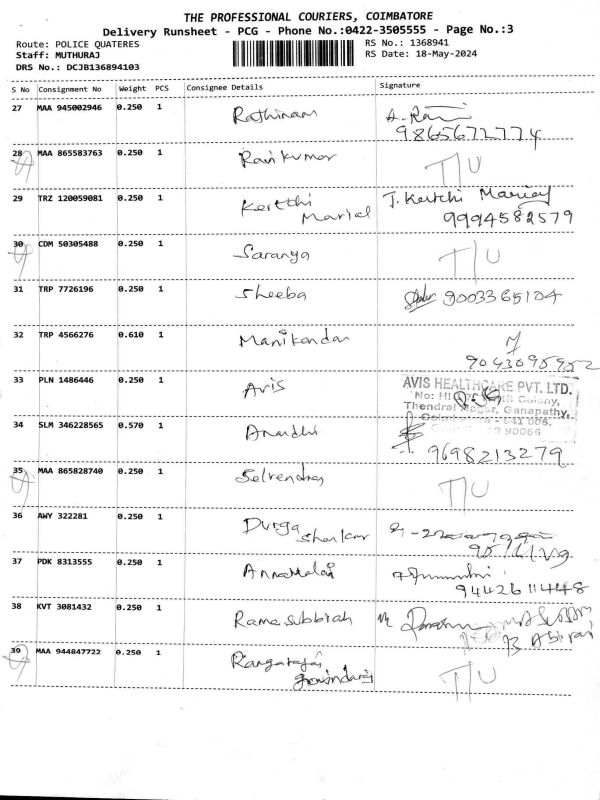 THE PROFESSIONAL COURIERS, COIMBATORE
Delivery Runsheet - PCG - Phone No.:0422-3505555 - Page No.:3
Route: POLICE QUATERES
RS No.: 1368941
Staff: MUTHURAJ
RS Date: 18-May-2024
DRS No.: DCJB136894103
S No Consignment No Weight PCS Consignee Details Signature
27 MAA 945002946 0.250 1 Rathinam
9865672774
28 MAA 865583763 0.250 1 Ravikumar T/U
29 TRZ 120059081 0.250 1 Kertthi Marial J. Kertchi
9994582579
30 CDM 50305488 0.250 1 Saranya T/U
31 TRP 7726196 0.250 1 Sheeba 9003365104
32 TRP 4566276 0.610 1 Manikandan
33 PLN 1486446 0.250 1 Avis AVIS HEALTHCARE PVT. LTD.
Colony,
Thendral Nagar, Ganapathy,
641 006.
34 SLM 346228565 0.570 1 Anandhi
9698213279
35 MAA 865828740 0.250 1 Selvendran T/U
36 AWY 322281 0.250 1 Durga Shankar
37 PDK 8313555 0.250 1 Annamalai
9442611448
38 KVT 3081432 0.250 1 Ramasubbiah
39 MAA 944847722 0.250 1 Rangarajan T/U